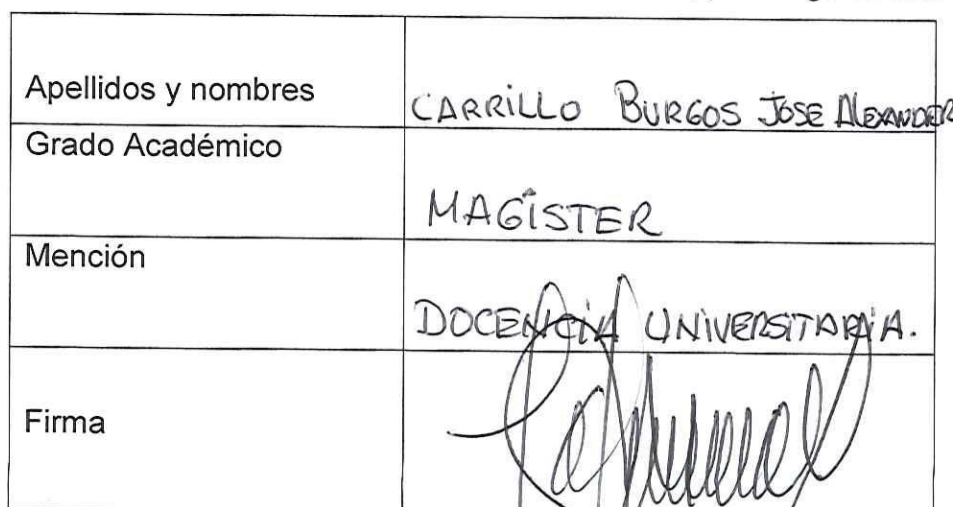 Apellidos y nombres CARRILLO BURGOS JOSE ALEXANDER
Grado Académico
MAGÍSTER
Mención
DOCENCIA UNIVERSITARIA.
Firma